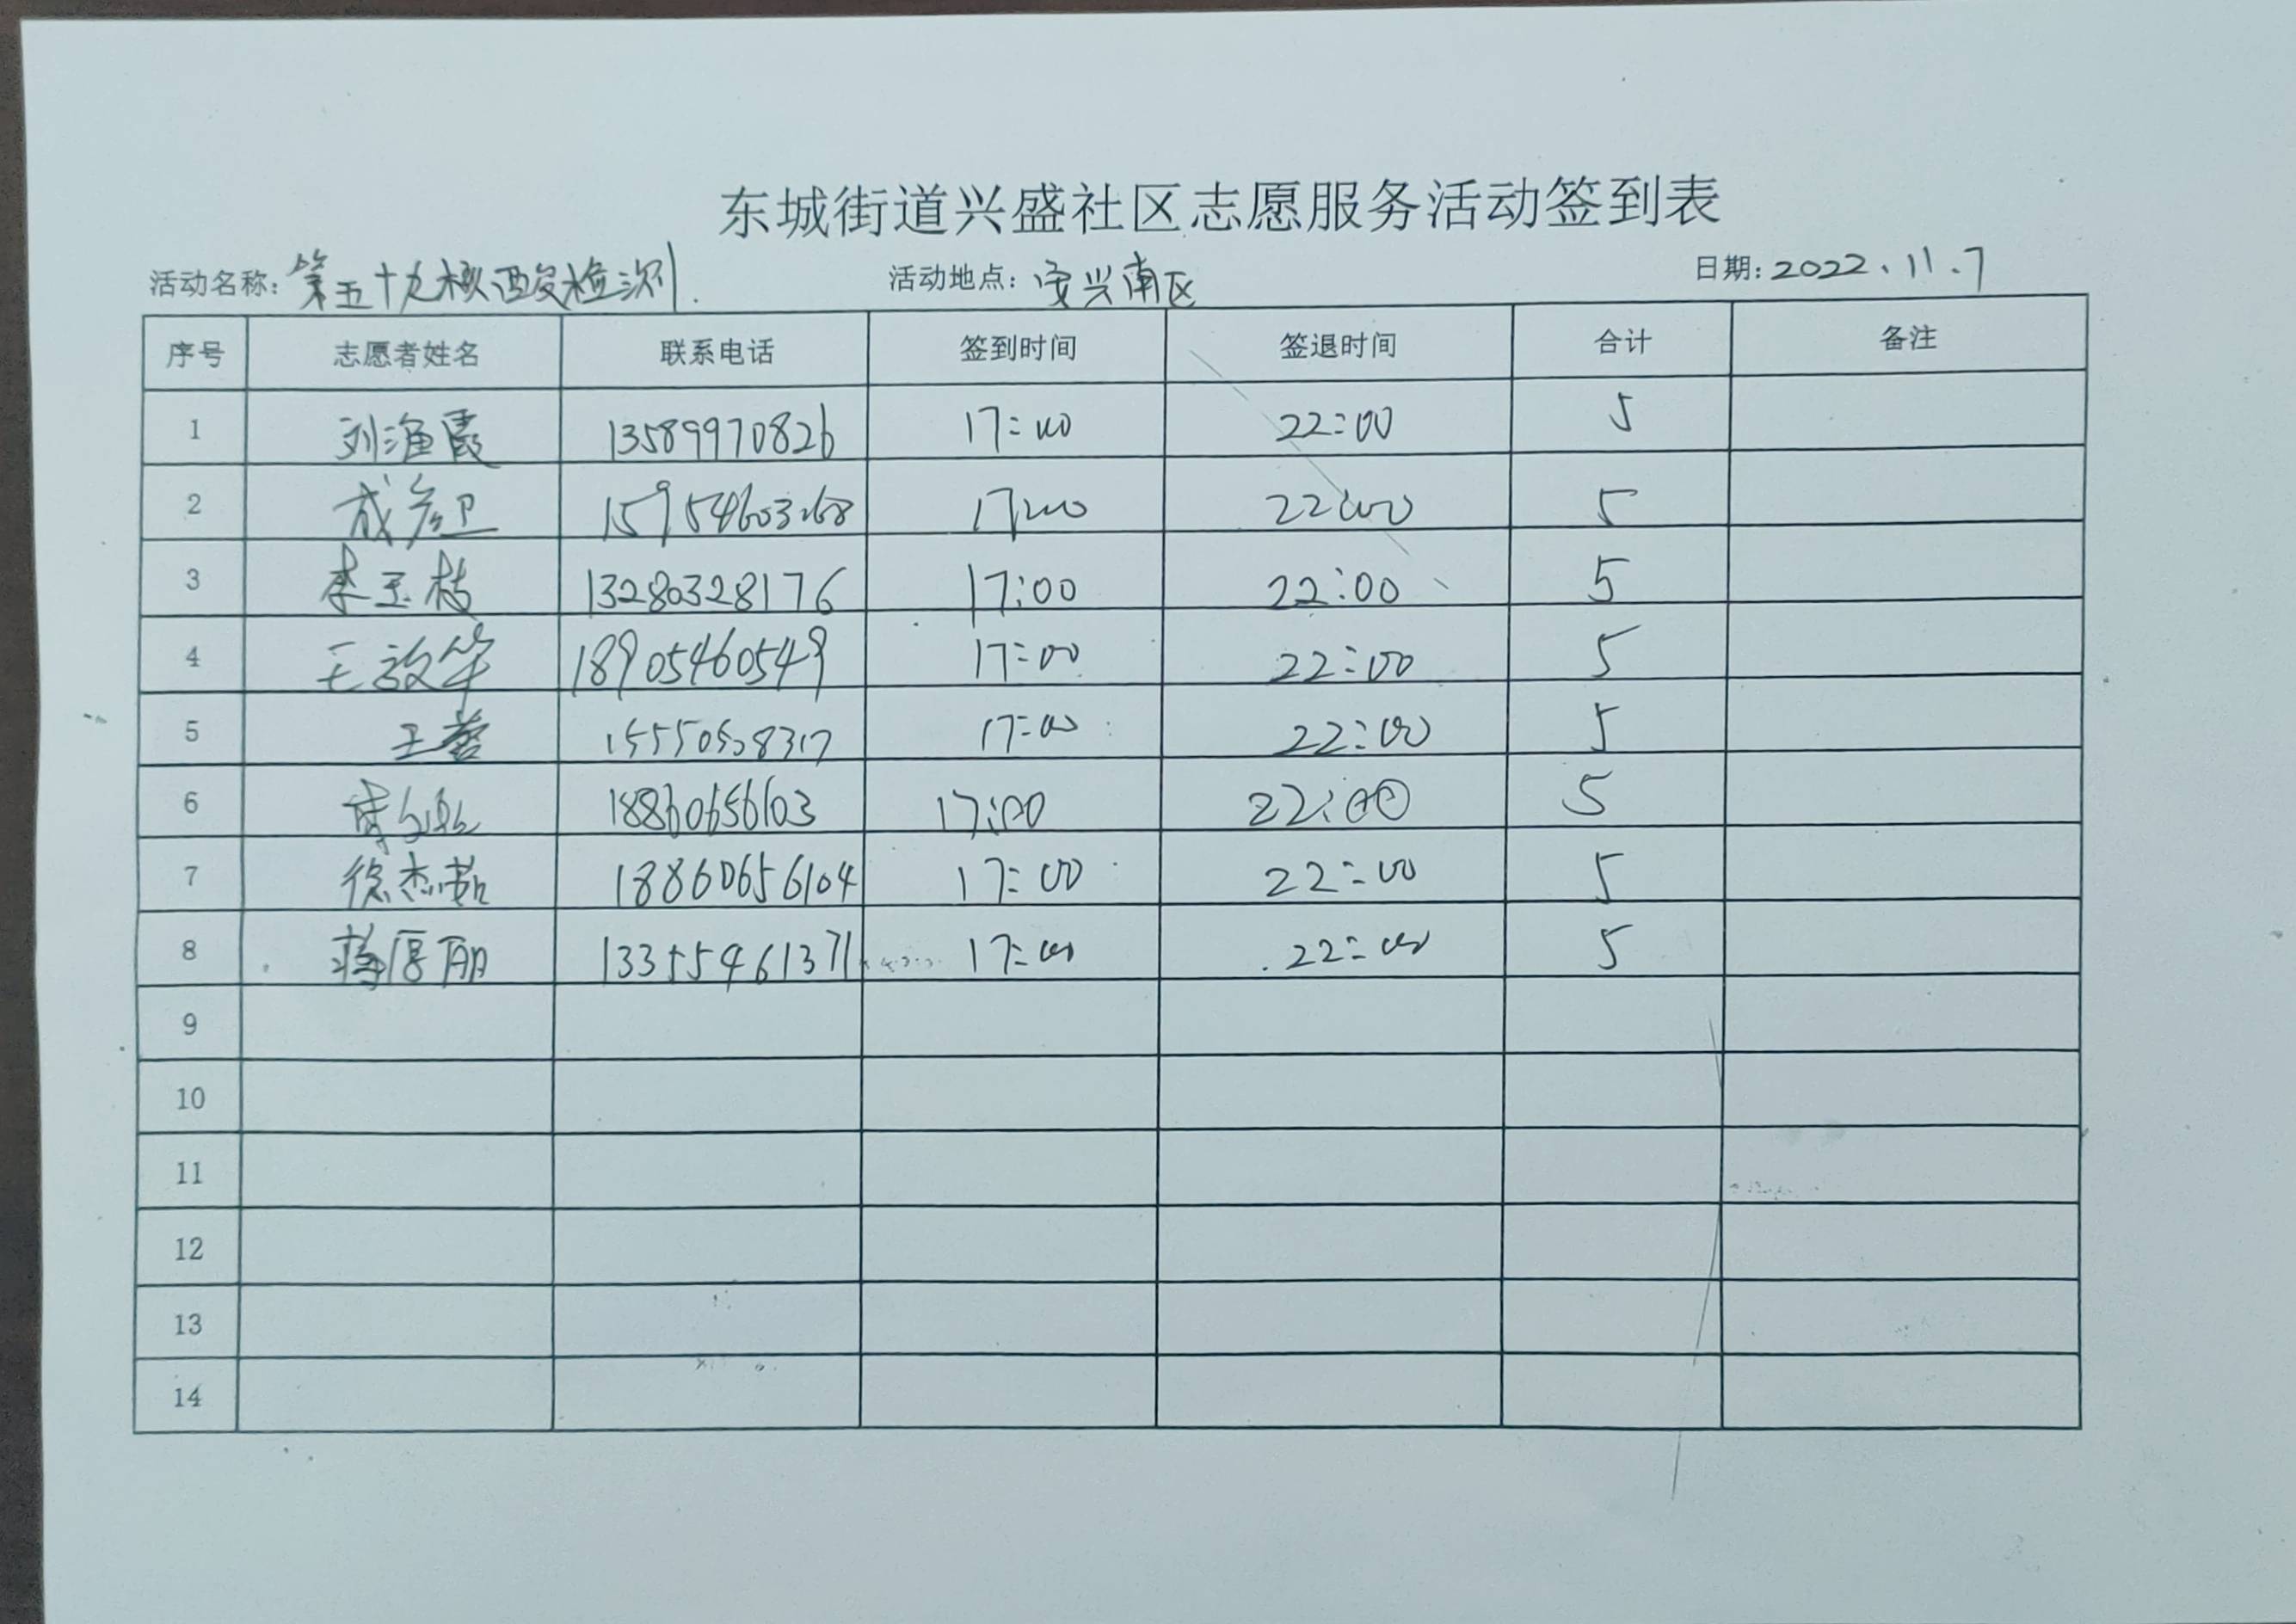 东城街道兴盛社区志愿服务活动签到表
活动名称：第五十九核酸检测 活动地点：安兴南区 日期：2022.11.7
序号 志愿者姓名 联系电话 签到时间 签退时间 合计 备注
1 刘渔霞 13589970826 17:00 22:00 5
2 成彦卫 15954603268 17:00 22:00 5
3 李玉枝 13280328176 17:00 22:00 5
4 王效华 18905460549 17:00 22:00 5
5 王蓉 15550508317 17:00 22:00 5
6 18860656103 17:00 22:00 5
7 徐杰茹 18860656104 17:00 22:00 5
8 蒋厚丽 13355461371 17:00 22:00 5
9
10
11
12
13
14